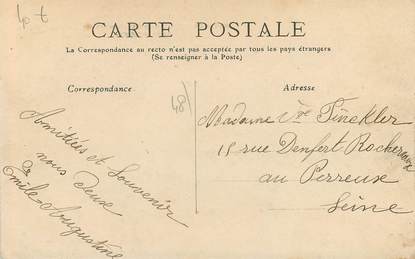 40 t
CARTE POSTALE
La Correspondance au recto n'est pas acceptée par tous les pays étrangers
(Se renseigner à la Poste)
Correspondance
Amitiées et Souvenir
nous deux
Emile Augustine
48)
Adresse
Madame Vve Finckler
15 rue Denfert Rochereau
au Perreux
Seine